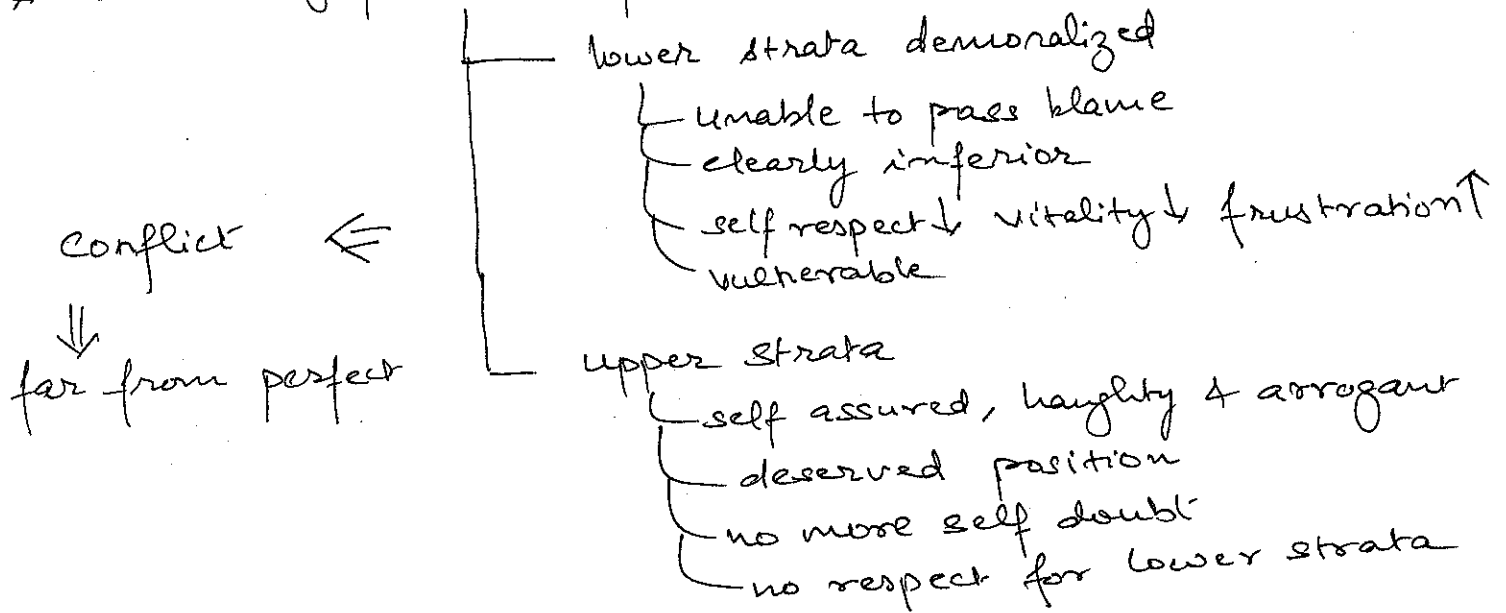 lower strata demoralized
unable to pass blame
clearly inferior
self respect↓ vitality↓ frustration↑
vulnerable
conflict ⇐
⇓
far from perfect
upper strata
self assured, haughty & arrogant
deserved position
no more self doubt
no respect for lower strata